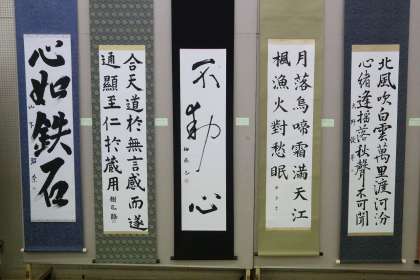 北風吹白雲萬里渡河汾
心緒逢揺落秋聲不可聞
月落烏啼霜滿天江
楓漁火對愁眠
不動心
合天道於無言感而遂
通顯至仁於蔵用
心如鉄石